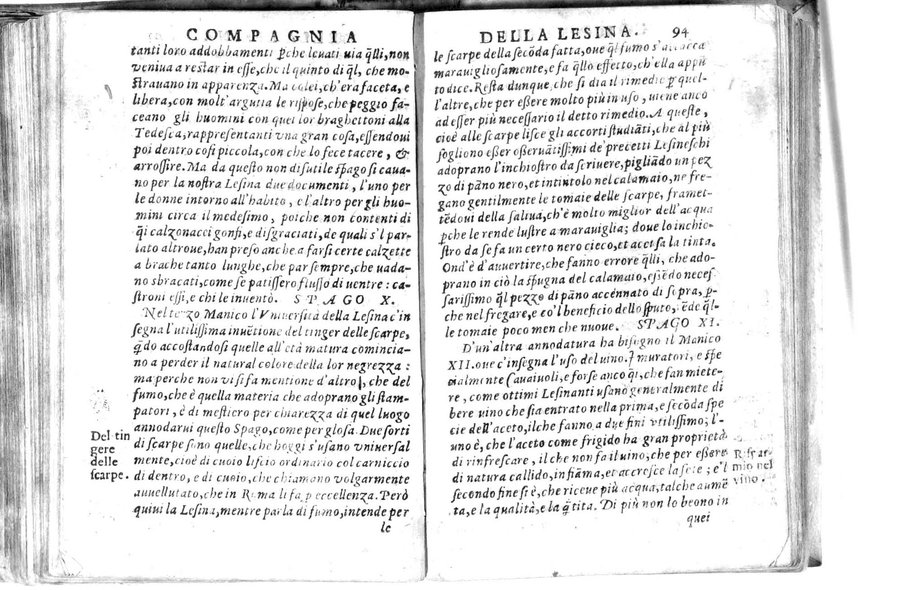 COMPAGNIA
tanti loro addobbamenti p̱che leuati uia q̃lli, non
veniua a restar in esse, che il quinto di q̃l, che mo-
strauano in apparenza. Ma colei, ch'era faceta, e
libera, con molt'argutia le rispose, che peggio fa-
ceano gli huomini con quei lor braghettoni alla
Tedesca, rappresentanti vna gran cosa, essendoui
poi dentro cosi piccola, con che lo fece tacere, &
arrossire. Ma da questo non disutile spago si caua-
no per la nostra Lesina due documenti, l'uno per
le donne intorno all'habito, e l'altro per gli huo-
mini circa il medesimo, poiche non contenti di
q̃i calzonacci gonfi, e disgraciati, de quali s'l par-
lato altroue, han preso anche a farsi certe calzette
a brache tanto lunghe, che par sempre, che uada-
no sbracati, come se patissero flusso di uentre: ca-
stroni essi, e chi le inuentò. SPAGO X.
Nel terzo Manico l'Vniuersità della Lesina c'in
segna l'utilissima inuētione del tinger delle scarpe,
q̃do accostandosi quelle all'età matura comincia-
no a perder il natural colore della lor negrezza:
ma perche non vi si fa mentione d'altro, che del
fumo, che è quella materia che adoprano gli stam-
patori, è di mestiero per chiarezza di quel luogo
annodarui questo Spago, come per glosa. Due sorti
di scarpe sono quelle, che hoggi s'usano vniuersal
mente, cioè di cuoio liscio ordinario col carniccio
di dentro, e di cuoio, che chiamano volgarmente
auuellutato, che in Roma si fa p̱ eccellenza. Però
quiui la Lesina, mentre parla di fumo, intende per
le
Del tin
gere
delle
scarpe.
DELLA LESINA. 94
le scarpe della secōda fatta, oue q̃l fumo s'attacca
marauigliosamente, e fa q̃llo effetto, ch'ella appū
to dice. Resta dunque, che si dia il rimedio p̱ quel-
l'altre, che per essere molto più in uso, uiene anco
ad esser più necessario il detto rimedio. A queste,
cioè alle scarpe lisce gli accorti studiāti, che al più
sogliono esser osseruātissimi de' precetti Lesineschi
adoprano l'inchiostro da scriuere, pigliādo un pez
zo di pāno nero, et intintolo nel calamaio, ne fre-
gano gentilmente le tomaie delle scarpe, framet-
tēdoui della saliua, ch'è molto miglior dell'acqua
p̱che le rende lustre a marauiglia; doue lo inchio-
stro da se fa un certo nero cieco, et acetsa la tinta.
Ond'è d'auuertire, che fanno errore q̃lli, che ado-
prano in ciò la spugna del calamaio, essēdo neces-
sarissimo q̃l pezzo di pāno accennato di sopra, p̱-
che nel fregare, e co'l beneficio dello sputo, rēde q̃l-
le tomaie poco men che nuoue. SPAGO XI.
D'un'altra annodatura ha bisogno il Manico
XII. oue c'insegna l'uso del uino. I muratori, e spe
cialmente i cauaiuoli, e forse anco q̃i, che fan miete-
re, come ottimi Lesinanti usano generalmente di
bere vino che sia entrato nella prima, e secōda spe
cie dell'aceto, ilche fanno a due fini vtilissimo; l'-
uno è, che l'aceto come frigido ha gran proprietà
di rinfrescare, il che non fa il uino, che per essere
di natura callido, infiāma, et accresce la sete; e'l
secondo fine si è, che riceue più acqua, talche aumē
ta, e la qualità, e la q̃tita. Di più non lo beono in
quei
mio nel
vino.